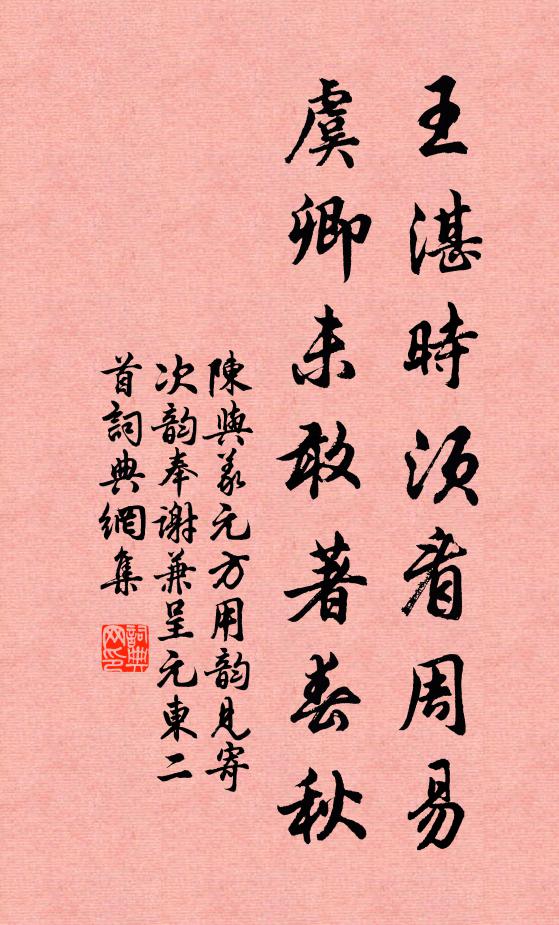 王湛時須看周易
虞卿未敢著春秋
陳與義元方用韵見寄
次韵奉谢兼呈元東二
首詞典網集
詞典网印